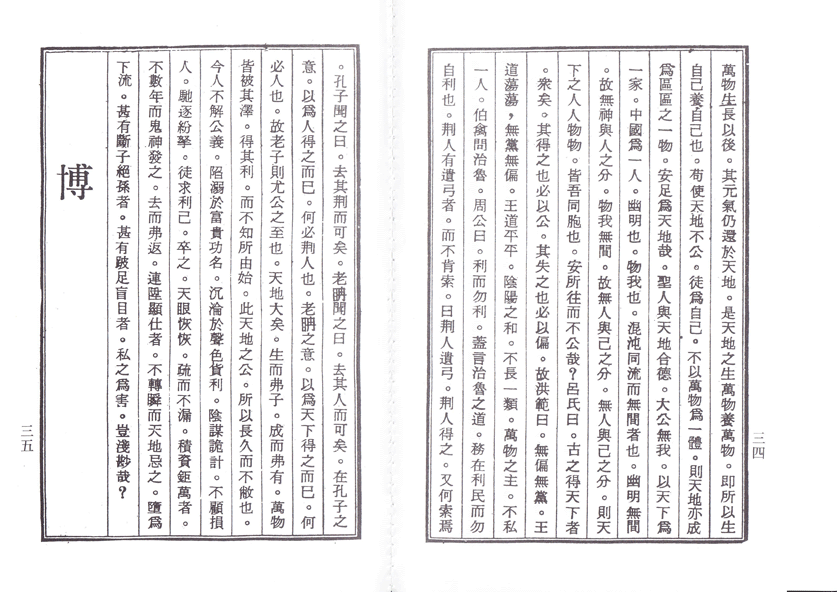 萬物生長以後。其元氣仍還於天地。是天地之生萬物養萬物。即所以生
自己養自己也。苟使天地不公。徒爲自己。不以萬物爲一體。則天地亦成
爲區區之一物。安足爲天地哉。聖人與天地合德。大公無我。以天下爲
一家。中國爲一人。幽明也。物我也。混沌同流而無間者也。幽明無間
。故無神與人之分。物我無間。故無人與己之分。無人與己之分。則天
下之人人物物。皆吾同胞也。安所往而不公哉？呂氏曰。古之得天下者
。衆矣。其得之也必以公。其失之也必以偏。故洪範曰。無偏無黨。王
道蕩蕩，無黨無偏。王道平平。陰陽之和。不長一類。萬物之主。不私
一人。伯禽問治魯。周公曰。利而勿利。蓋言治魯之道。務在利民而勿
自利也。荆人有遺弓者。而不肯索。曰荆人遺弓。荆人得之。又何索焉
三四
。孔子聞之曰。去其荆而可矣。老聃聞之曰。去其人而可矣。在孔子之
意。以爲人得之而已。何必荆人也。老聃之意。以爲天下得之而已。何
必人也。故老子則尤公之至也。天地大矣。生而弗子。成而弗有。萬物
皆被其澤。得其利。而不知所由始。此天地之公。所以長久而不敝也。
今人不解公義。陷溺於富貴功名。沉淪於聲色貨利。陰謀詭計。不顧損
人。馳逐紛拏。徒求利己。卒之。天眼恢恢。疏而不漏。積資鉅萬者。
不數年而鬼神發之。去而弗返。連陞顯仕者。不轉瞬而天地忌之。墮爲
下流。甚有斷子絕孫者。甚有跛足盲目者。私之爲害。豈淺尠哉？
博
三五